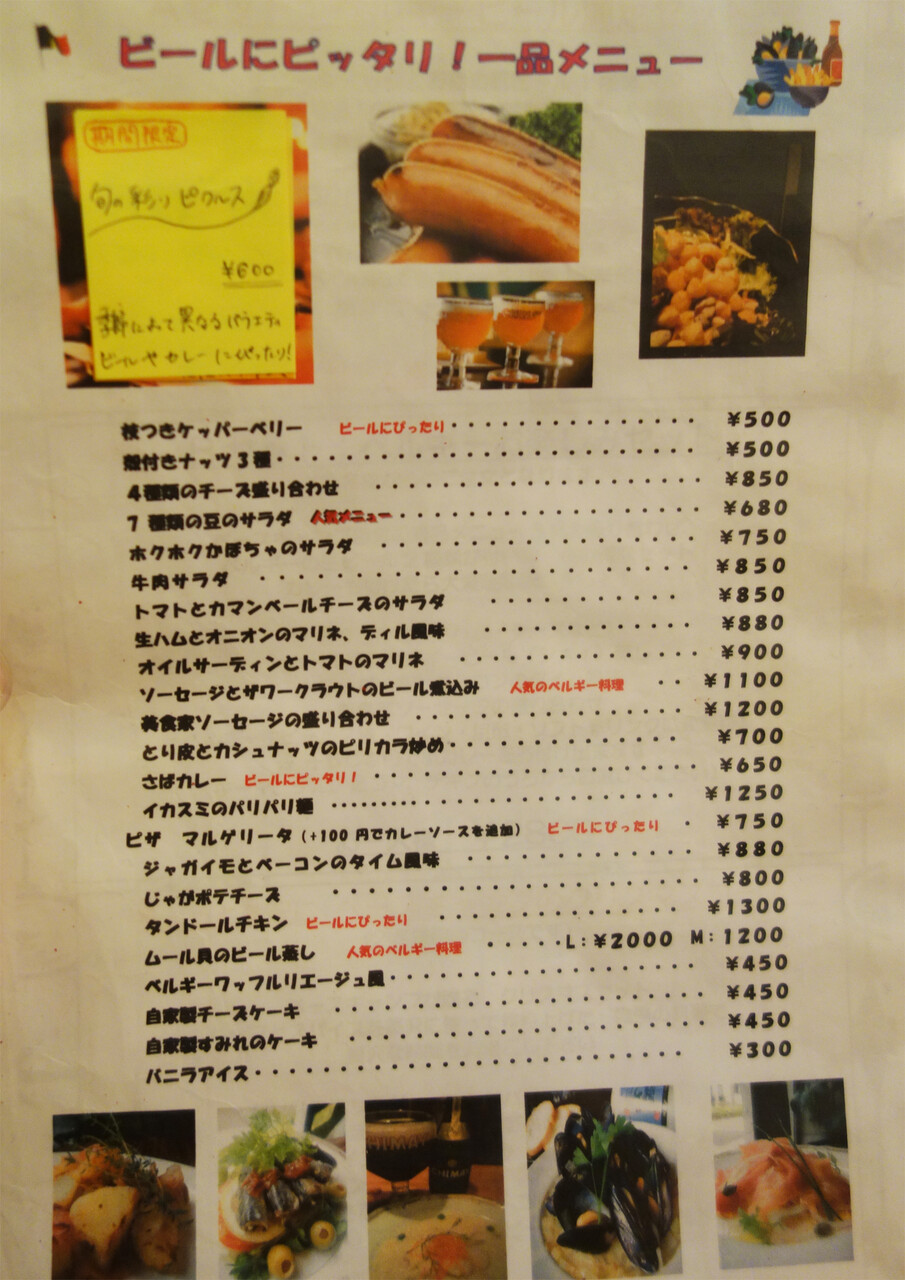 ビールにピッタリ！一品メニュー
期間限定
旬の彩り ピクルス
¥600
季節によって異なるバラエティ
ビールやカレーにぴったり!
枝つきケッパーベリー ビールにぴったり・・・・・・・・・・・・・・・ ¥500
殻付きナッツ３種・・・・・・・・・・・・・・・・・・・・・・・・・・ ¥500
４種類のチーズ盛り合わせ ・・・・・・・・・・・・・・・・・・・・ ¥850
７種類の豆のサラダ 人気メニュー・・・・・・・・・・・・・・・・・・・ ¥680
ホクホクかぼちゃのサラダ ・・・・・・・・・・・・・・・・・・・・ ¥750
牛肉サラダ ・・・・・・・・・・・・・・・・・・・・・・・・・・・ ¥850
トマトとカマンベールチーズのサラダ ・・・・・・・・・・・・ ¥850
生ハムとオニオンのマリネ、ディル風味 ・・・・・・・・・・・・・ ¥880
オイルサーディンとトマトのマリネ ・・・・・・・・・・・・・・・ ¥900
ソーセージとザワークラウトのビール煮込み 人気のベルギー料理 ・・ ¥1100
美食家ソーセージの盛り合わせ ・・・・・・・・・・・・・・・・・ ¥1200
とり皮とカシュナッツのピリカラ炒め・・・・・・・・・・・・・・ ¥700
さばカレー ビールにピッタリ！ ・・・・・・・・・・・・・・・・・・・・ ¥650
イカスミのパリパリ麺 ・・・・・・・・・・・・・・・・・・・・・・・・ ¥1250
ピザ マルゲリータ（+100 円でカレーソースを追加） ビールにぴったり ・ ¥750
ジャガイモとベーコンのタイム風味 ・・・・・・・・・・・・・・ ¥880
じゃがポテチーズ ・・・・・・・・・・・・・・・・・・・・・・・ ¥800
タンドールチキン ビールにぴったり ・・・・・・・・・・・・・・・ ¥1300
ムール貝のビール蒸し 人気のベルギー料理 ・・・・・L：¥2000 M：1200
ベルギーワッフルリエージュ風・・・・・・・・・・・・・・・・・・・ ¥450
自家製チーズケーキ ・・・・・・・・・・・・・・・・・・・・・・・ ¥450
自家製すみれのケーキ ・・・・・・・・・・・・・・・・・・・・・・ ¥450
バニラアイス・・・・・・・・・・・・・・・・・・・・・・・・・・ ¥300